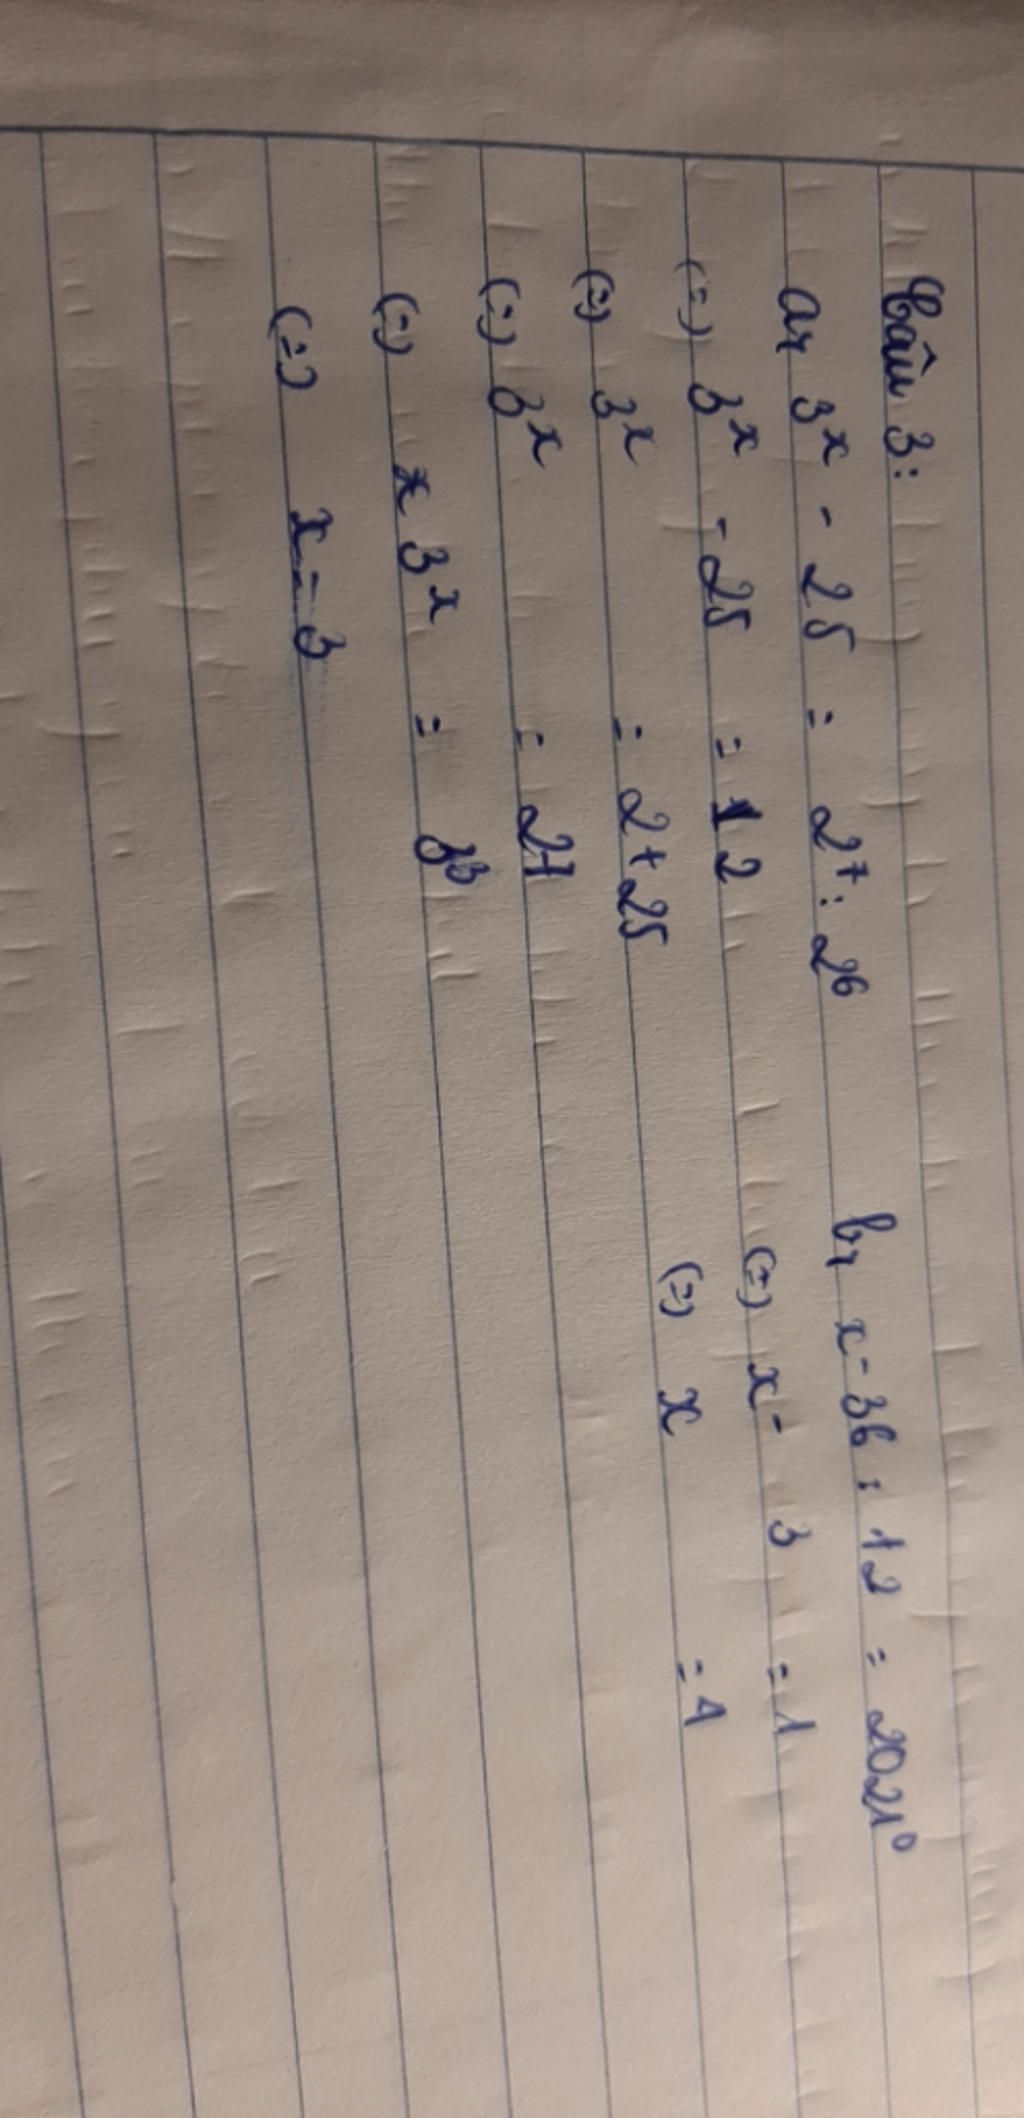 Câu 3:
a, 3ˣ - 25 = 2⁷ : 2⁶
(=) 3ˣ - 25 = 2
(=) 3ˣ = 2 + 25
(=) 3ˣ = 27
(=) 3ˣ = 3³
(=) x = 3
b, x - 36 : 12 = 2021⁰
(=) x - 3 = 1
(=) x = 4